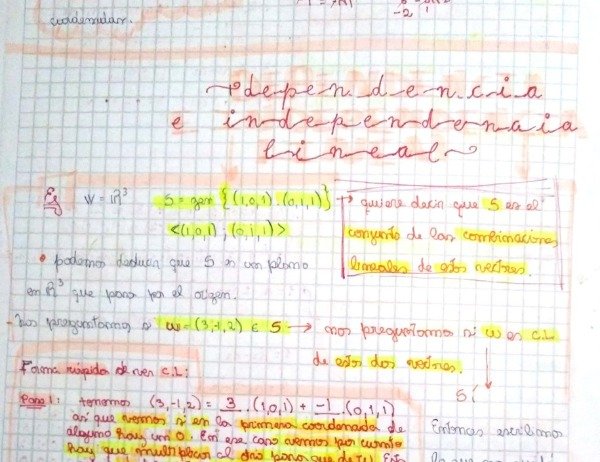 coordenadas.
-2
dependencia
e independenaia
lineal
Ej W = ℝ³ S = gen {(1,0,1).(0,1,1)} → quiere decir que S es el
<(1,0,1);(0,1,1)> conjunto de las combinaciones
lineales de estos vectores.
• podemos deducir que S es un plano
en ℝ³ que pasa por el origen.
- Nos preguntamos si w=(3,-1,2) ∈ S → nos preguntamos si w es C.L
de estos dos vectores.
↓
Sí
Forma rápida de ver C.L:
Paso 1: tenemos (3,-1,2) = 3 .(1,0,1) + -1 .(0,1,1)
así que vemos si en la primera coordenada de Entonces escribimos
alguno hay un 0. En ese caso vemos por cuanto
hay que multiplicar al otro para que de